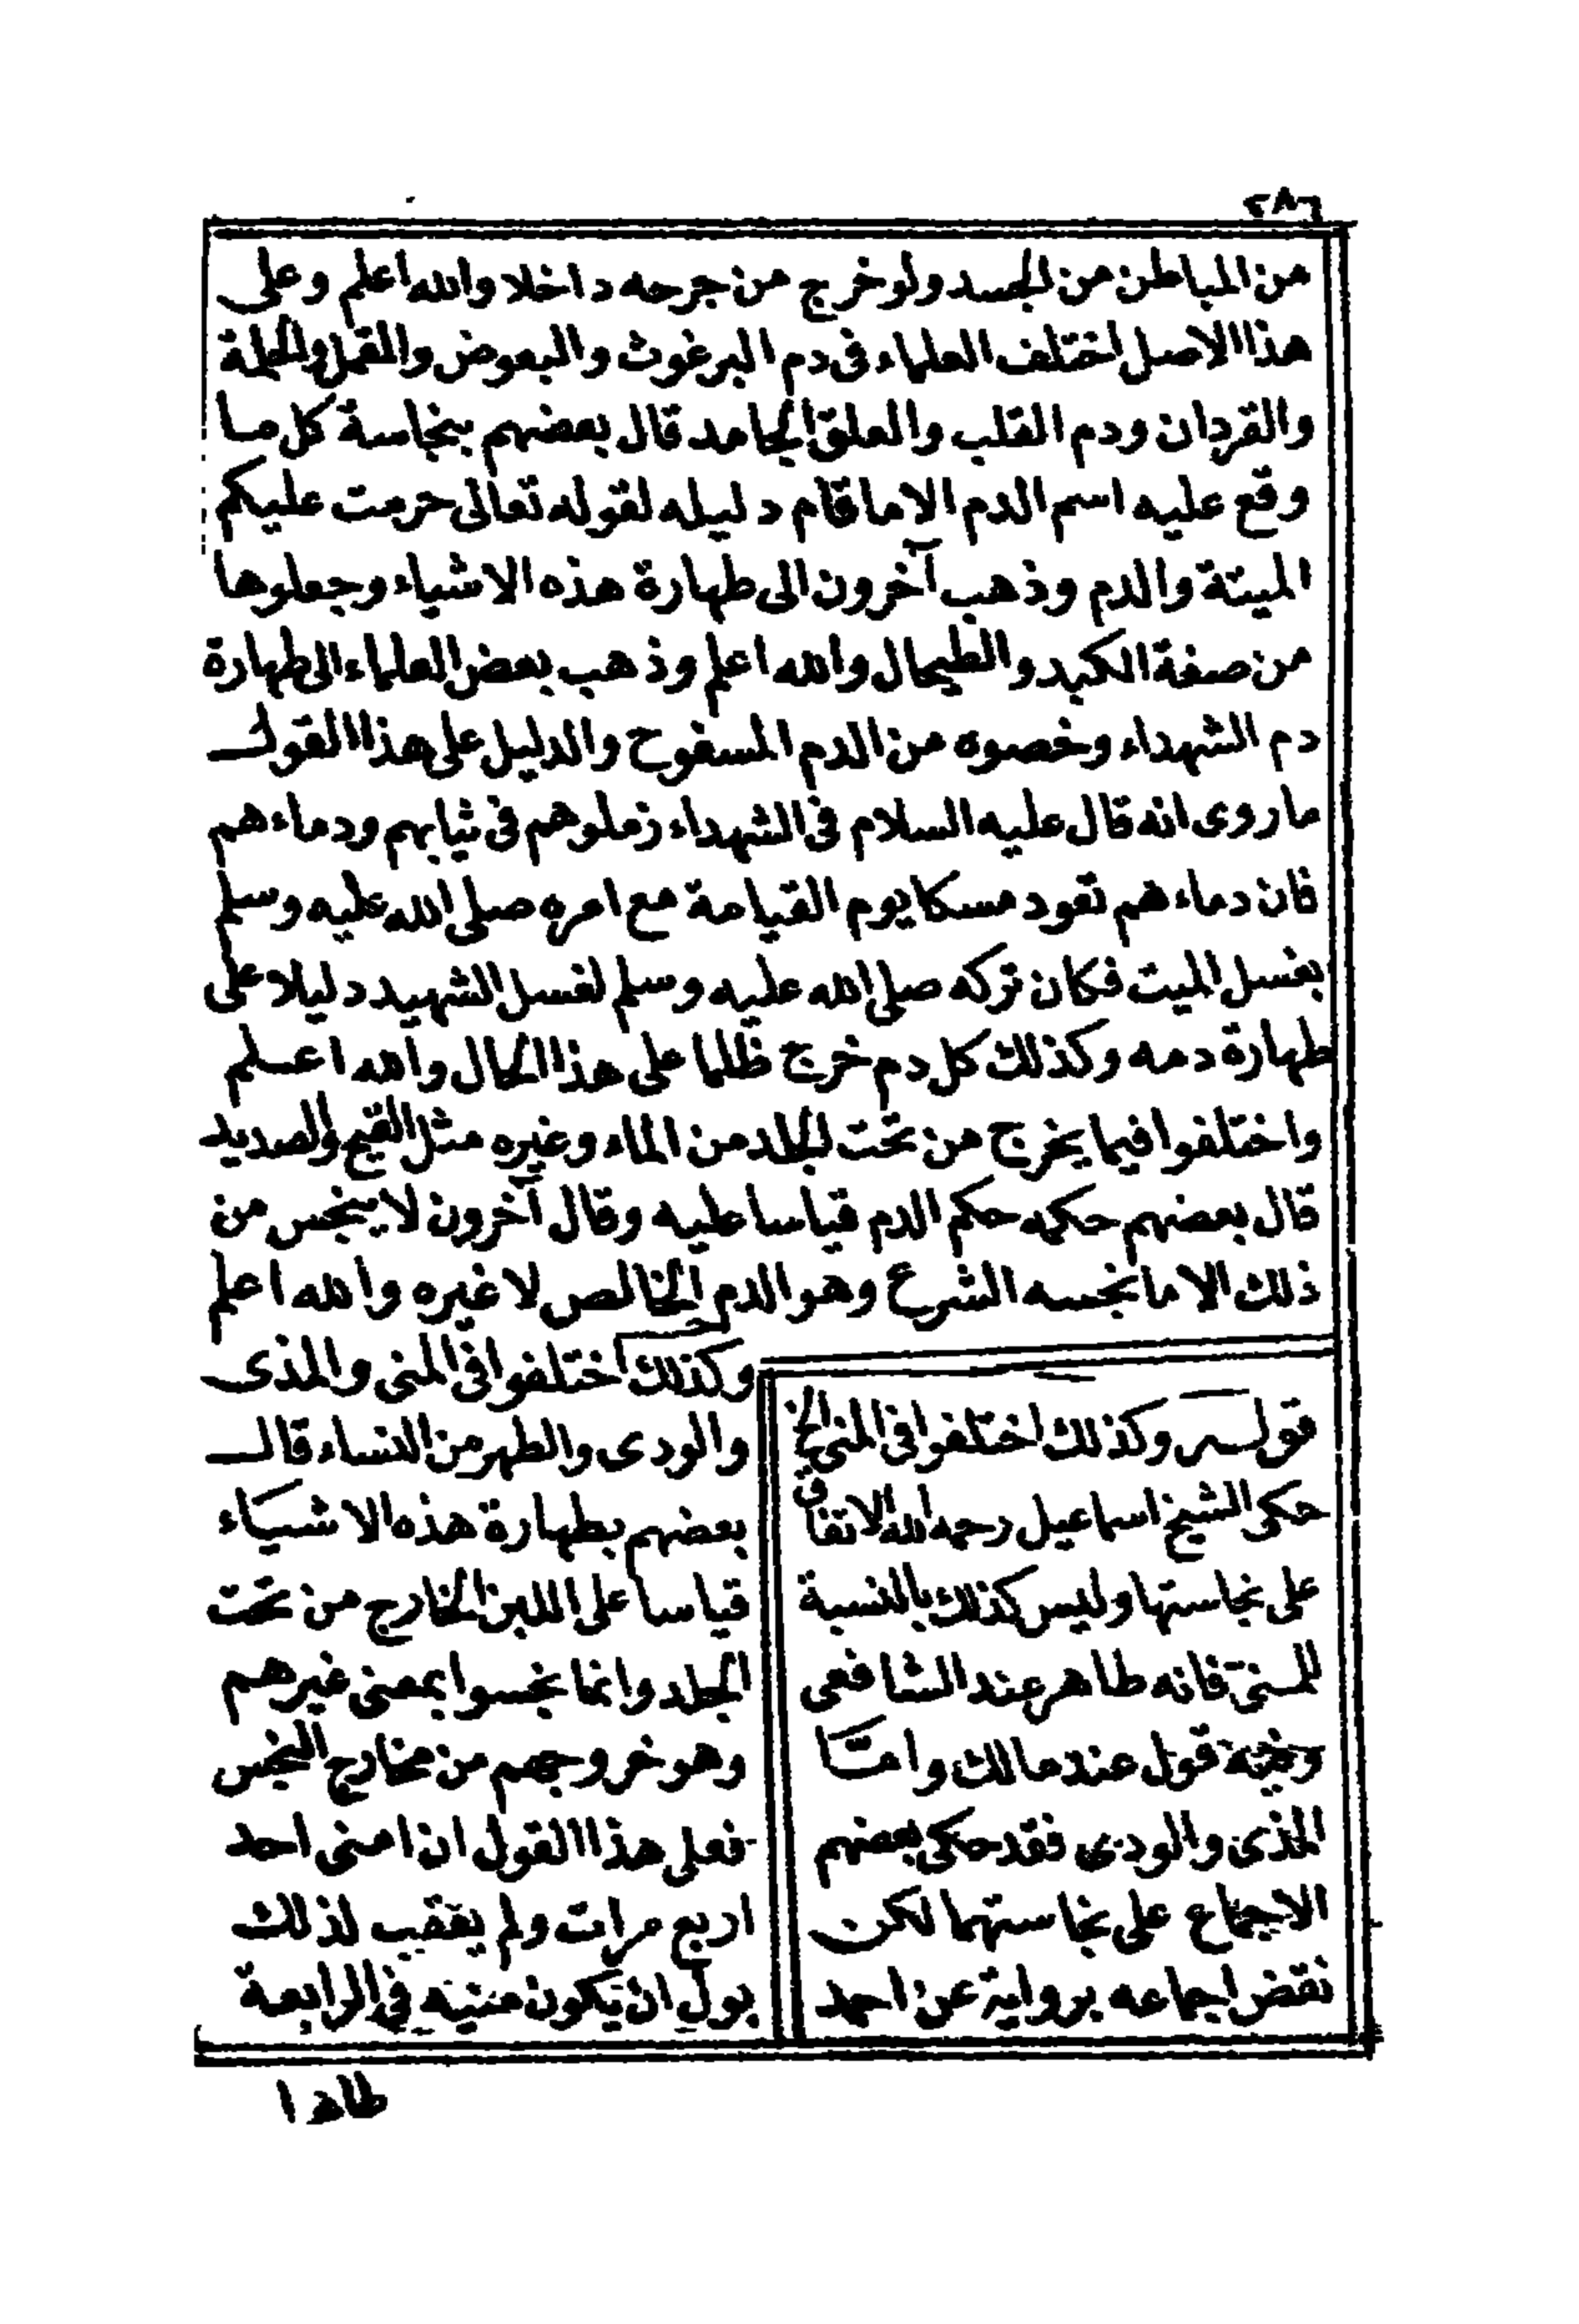 ٢٨٦
من الباطن من الجسد ولو خرج من جرحه داخلا والله اعلم وعلى
هذا الاصل اختلف العلماء فى دم البرغوث والبعوض والقمل والحلمة
والقردان ودم القلب والعلق الجامد قال بعضهم بنجاسة كل ما
وقع عليه اسم الدم الا ما قام دليله لقوله تعالى حرمت عليكم
الميتة والدم وذهب آخرون الى طهارة هذه الاشياء وجعلوها
من صفة الكبد والطيحال والله اعلم وذهب بعض العلماء الى طهارة
دم الشهداء وخصوه من الدم المسفوح والدليل على هذا القول
ما روى انه قال عليه السلام فى الشهداء زملوهم فى ثيابهم ودماءهم
فان دماءهم تعود مسكا يوم القيامة مع امره صلى الله عليه وسلم
بغسل الميت فكان تركه صلى الله عليه وسلم لغسل الشهيد دليلا على
طهارة دمه وكذلك كل دم خرج ظلما على هذا الحال والله اعلم
واختلفوا فيما يخرج من تحت الجلد من الماء وغيره مثل القيح والصديد
قال بعضهم حكمه حكم الدم قياسا عليه وقال آخرون لا ينجس من
ذلك الا ما نجسه الشرع وهو الدم الخالص لا غيره والله اعلم
وكذلك اختلفوا فى المنى والمذى
والودى والطهر من النساء قال
بعضهم بطهارة هذه الاشياء
قياسا على اللبن الخارج من تحت
الجلد وانما نجسوا بمعنى غيرهم
وهو خروجهم من مخارج النجس
فعلى هذا القول ان امنى احد
اربع مرات ولم يعقب لذلك
بول ان يكون منيه فى الرابعة
قوله وكذلك اختلفوا فى المنى الخ
حكى الشيخ اسماعيل رحمه الله الاتفاق
على نجاستها وليس كذلك بالنسبة
للمنىّ فانه طاهر عند الشافعى
وفيه قول عند مالك وامّا
المذى والودى فقد حكى بعضهم
الاجماع على نجاستهما لكن
نقض اجماعه برواية عن احمد
طاهرا